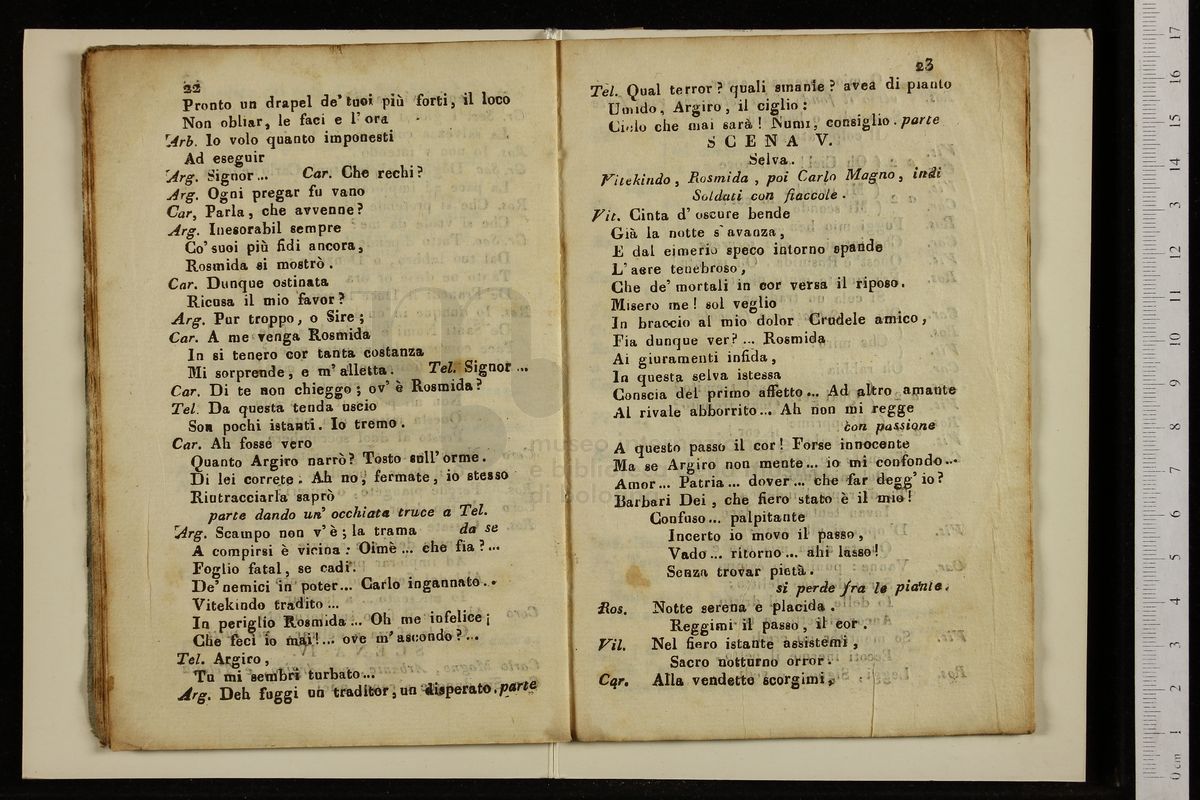 22
Pronto un drapel de' tuoi più forti, il loco
Non obliar, le faci e l'ora
Arb. Io volo quanto imponesti
Ad eseguir
Arg. Signor... Car. Che rechi?
Arg. Ogni pregar fu vano
Car, Parla, che avvenne?
Arg. Inesorabil sempre
Co' suoi più fidi ancora,
Rosmida si mostrò.
Car. Dunque ostinata
Ricusa il mio favor?
Arg. Pur troppo, o Sire;
Car. A me venga Rosmida
In si tenero cor tanta costanza
Mi sorprende, e m'alletta. Tel. Signor...
Car. Di te non chieggo; ov'è Rosmida?
Tel. Da questa tenda uscio
Son pochi istanti. Io tremo.
Car. Ah fosse vero
Quanto Argiro narrò? Tosto sull'orme.
Di lei correte. Ah no, fermate, io stesso
Rintracciarla saprò
parte dando un' occhiata truce a Tel.
Arg. Scampo non v'è; la trama da se
A compirsi è vicina: Oimè... che fia?...
Foglio fatal, se cadi.
De' nemici in poter... Carlo ingannato..
Vitekindo tradito...
In periglio Rosmida... Oh me infelice;
Che feci io mai!... ove m'ascondo?...
Tel. Argiro,
Tu mi sembri turbato...
Arg. Deh fuggi un traditor, un disperato. parte
23
Tel. Qual terror? quali smanie? avea di pianto
Umido, Argiro, il ciglio:
Cielo che mai sarà! Numi, consiglio. parte
SCENA V.
Selva.
Vitekindo, Rosmida, poi Carlo Magno, indi
Soldati con fiaccole.
Vit. Cinta d'oscure bende
Già la notte s'avanza,
E dal eimerio speco intorno spande
L'aere tenebroso,
Che de' mortali in cor versa il riposo.
Misero me! sol veglio
In braccio al mio dolor Crudele amico,
Fia dunque ver?... Rosmida
Ai giuramenti infida,
In questa selva istessa
Conscia del primo affetto... Ad altro amante
Al rivale abborrito... Ah non mi regge
con passione
A questo passo il cor! Forse innocente
Ma se Argiro non mente... io mi confondo...
Amor... Patria... dover... che far degg'io?
Barbari Dei, che fiero stato è il mio!
Confuso... palpitante
Incerto io movo il passo,
Vado... ritorno... ahi lasso!
Senza trovar pietà.
si perde fra le piante.
Ros. Notte serena e placida.
Reggimi il passo, il cor.
Vil. Nel fiero istante assistemi,
Sacro notturno orror.
Car. Alla vendette scorgimi,
museo
e bibl
di bolo
0 cm 1 2 3 4 5 6 7 8 9 10 11 12 13 14 15 16 17